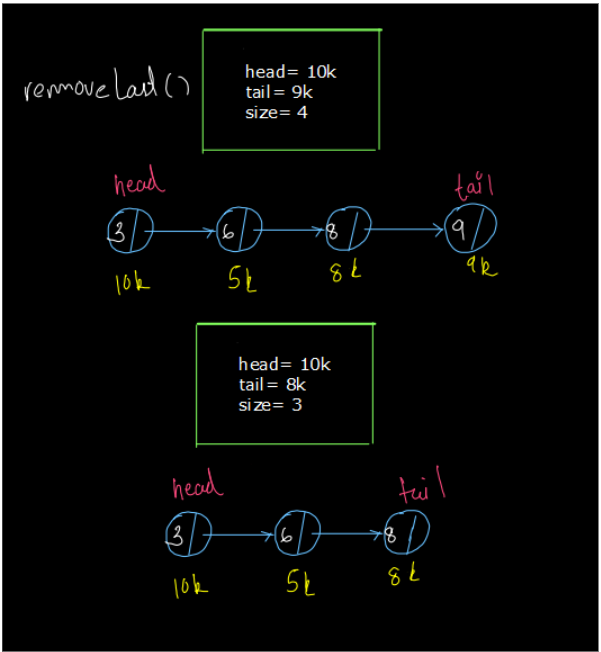 removeLast()
head= 10k
tail= 9k
size= 4
head tail
3 6 8 9
10k 5k 8k 9k
head= 10k
tail= 8k
size= 3
head tail
3 6 8
10k 5k 8k